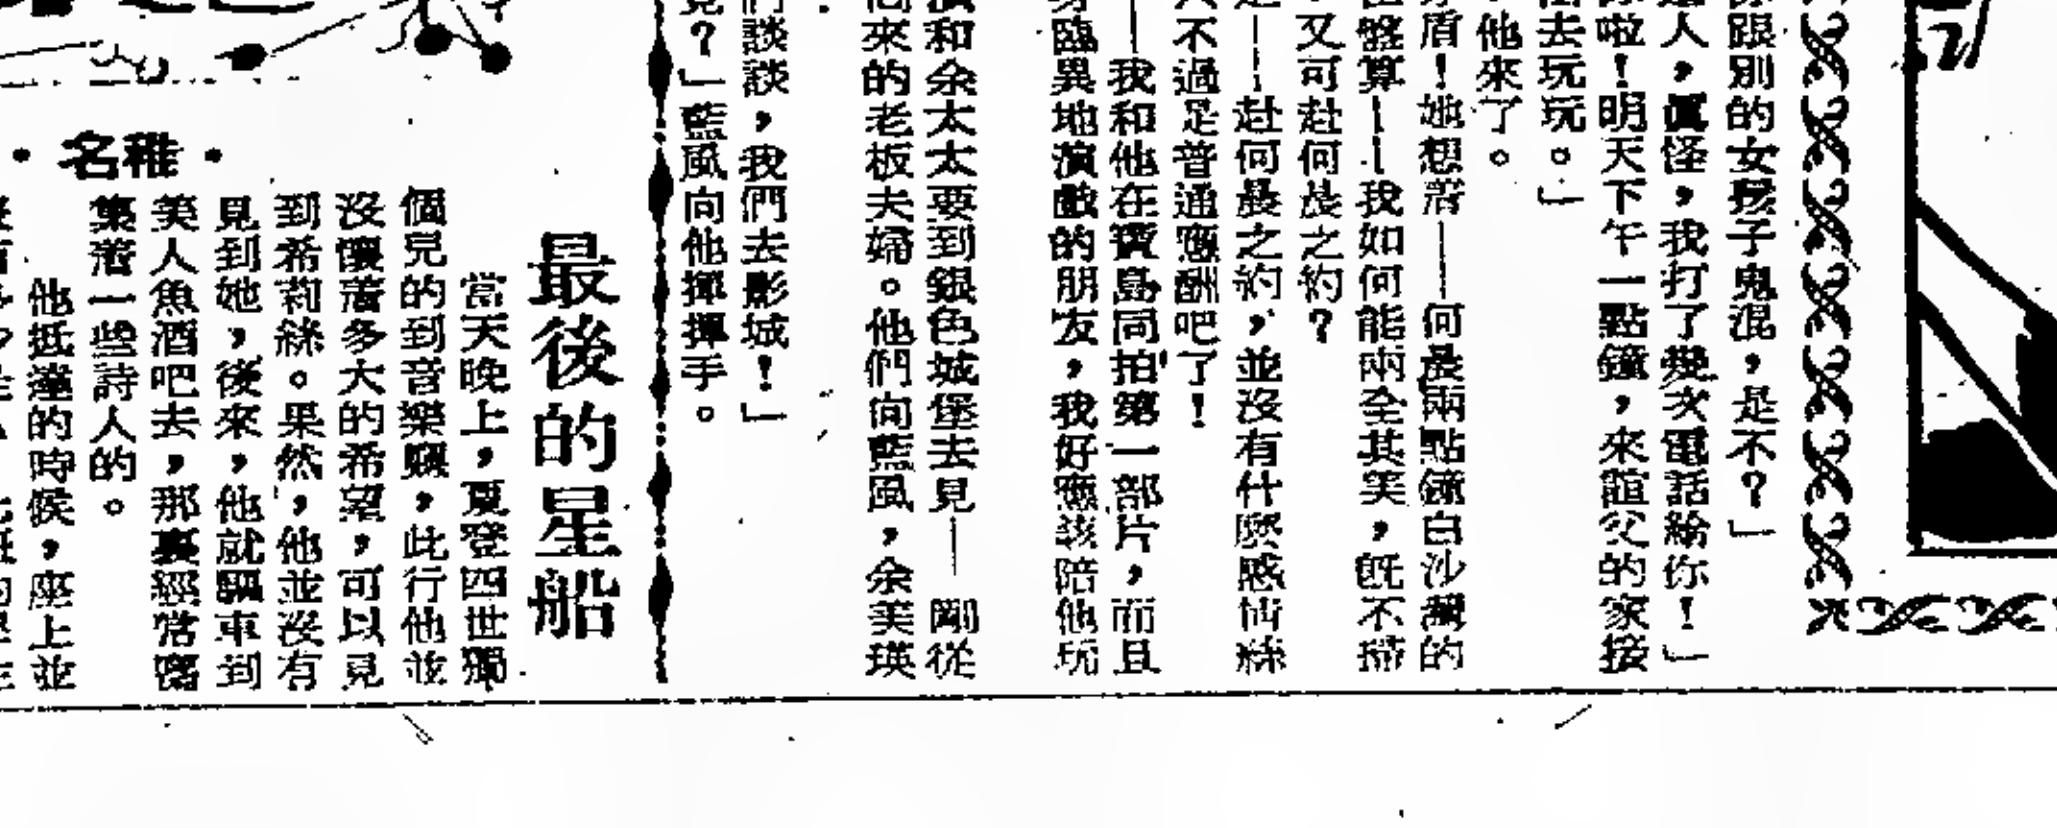 跟別的女孩子鬼混，是不？」
人，真怪，我打了幾次電話給你！」
啦！明天下午一點鐘，來誼父的家接
去玩玩。」
他來了。
盾！她想着——何晨兩點鐘白沙灣的
盤算——我如何能兩全其美，既不
又可赴何晨之約？
——赴何晨之約，並沒有什麼感情
不過是普通應酬吧了！
—我和他在寶島同拍第一部片，而且
臨異地演戲的朋友，我好應該陪他玩
和余太太要到銀色城堡去見——剛從
來的老板夫婦。他們向藍風，余美瑛
談談，我們去影城！」
？」藍風向他揮揮手。
最後的星船
·稚名·
當天晚上，夏登四世獨
個兒的到音樂廳，此行他並
沒懷着多大的希望，可以見
到希莉絲。果然，他並沒有
見到她，後來，他就驅車到
美人魚酒吧去，那裏經常
集着一些詩人的。
他抵達的時候，座上並